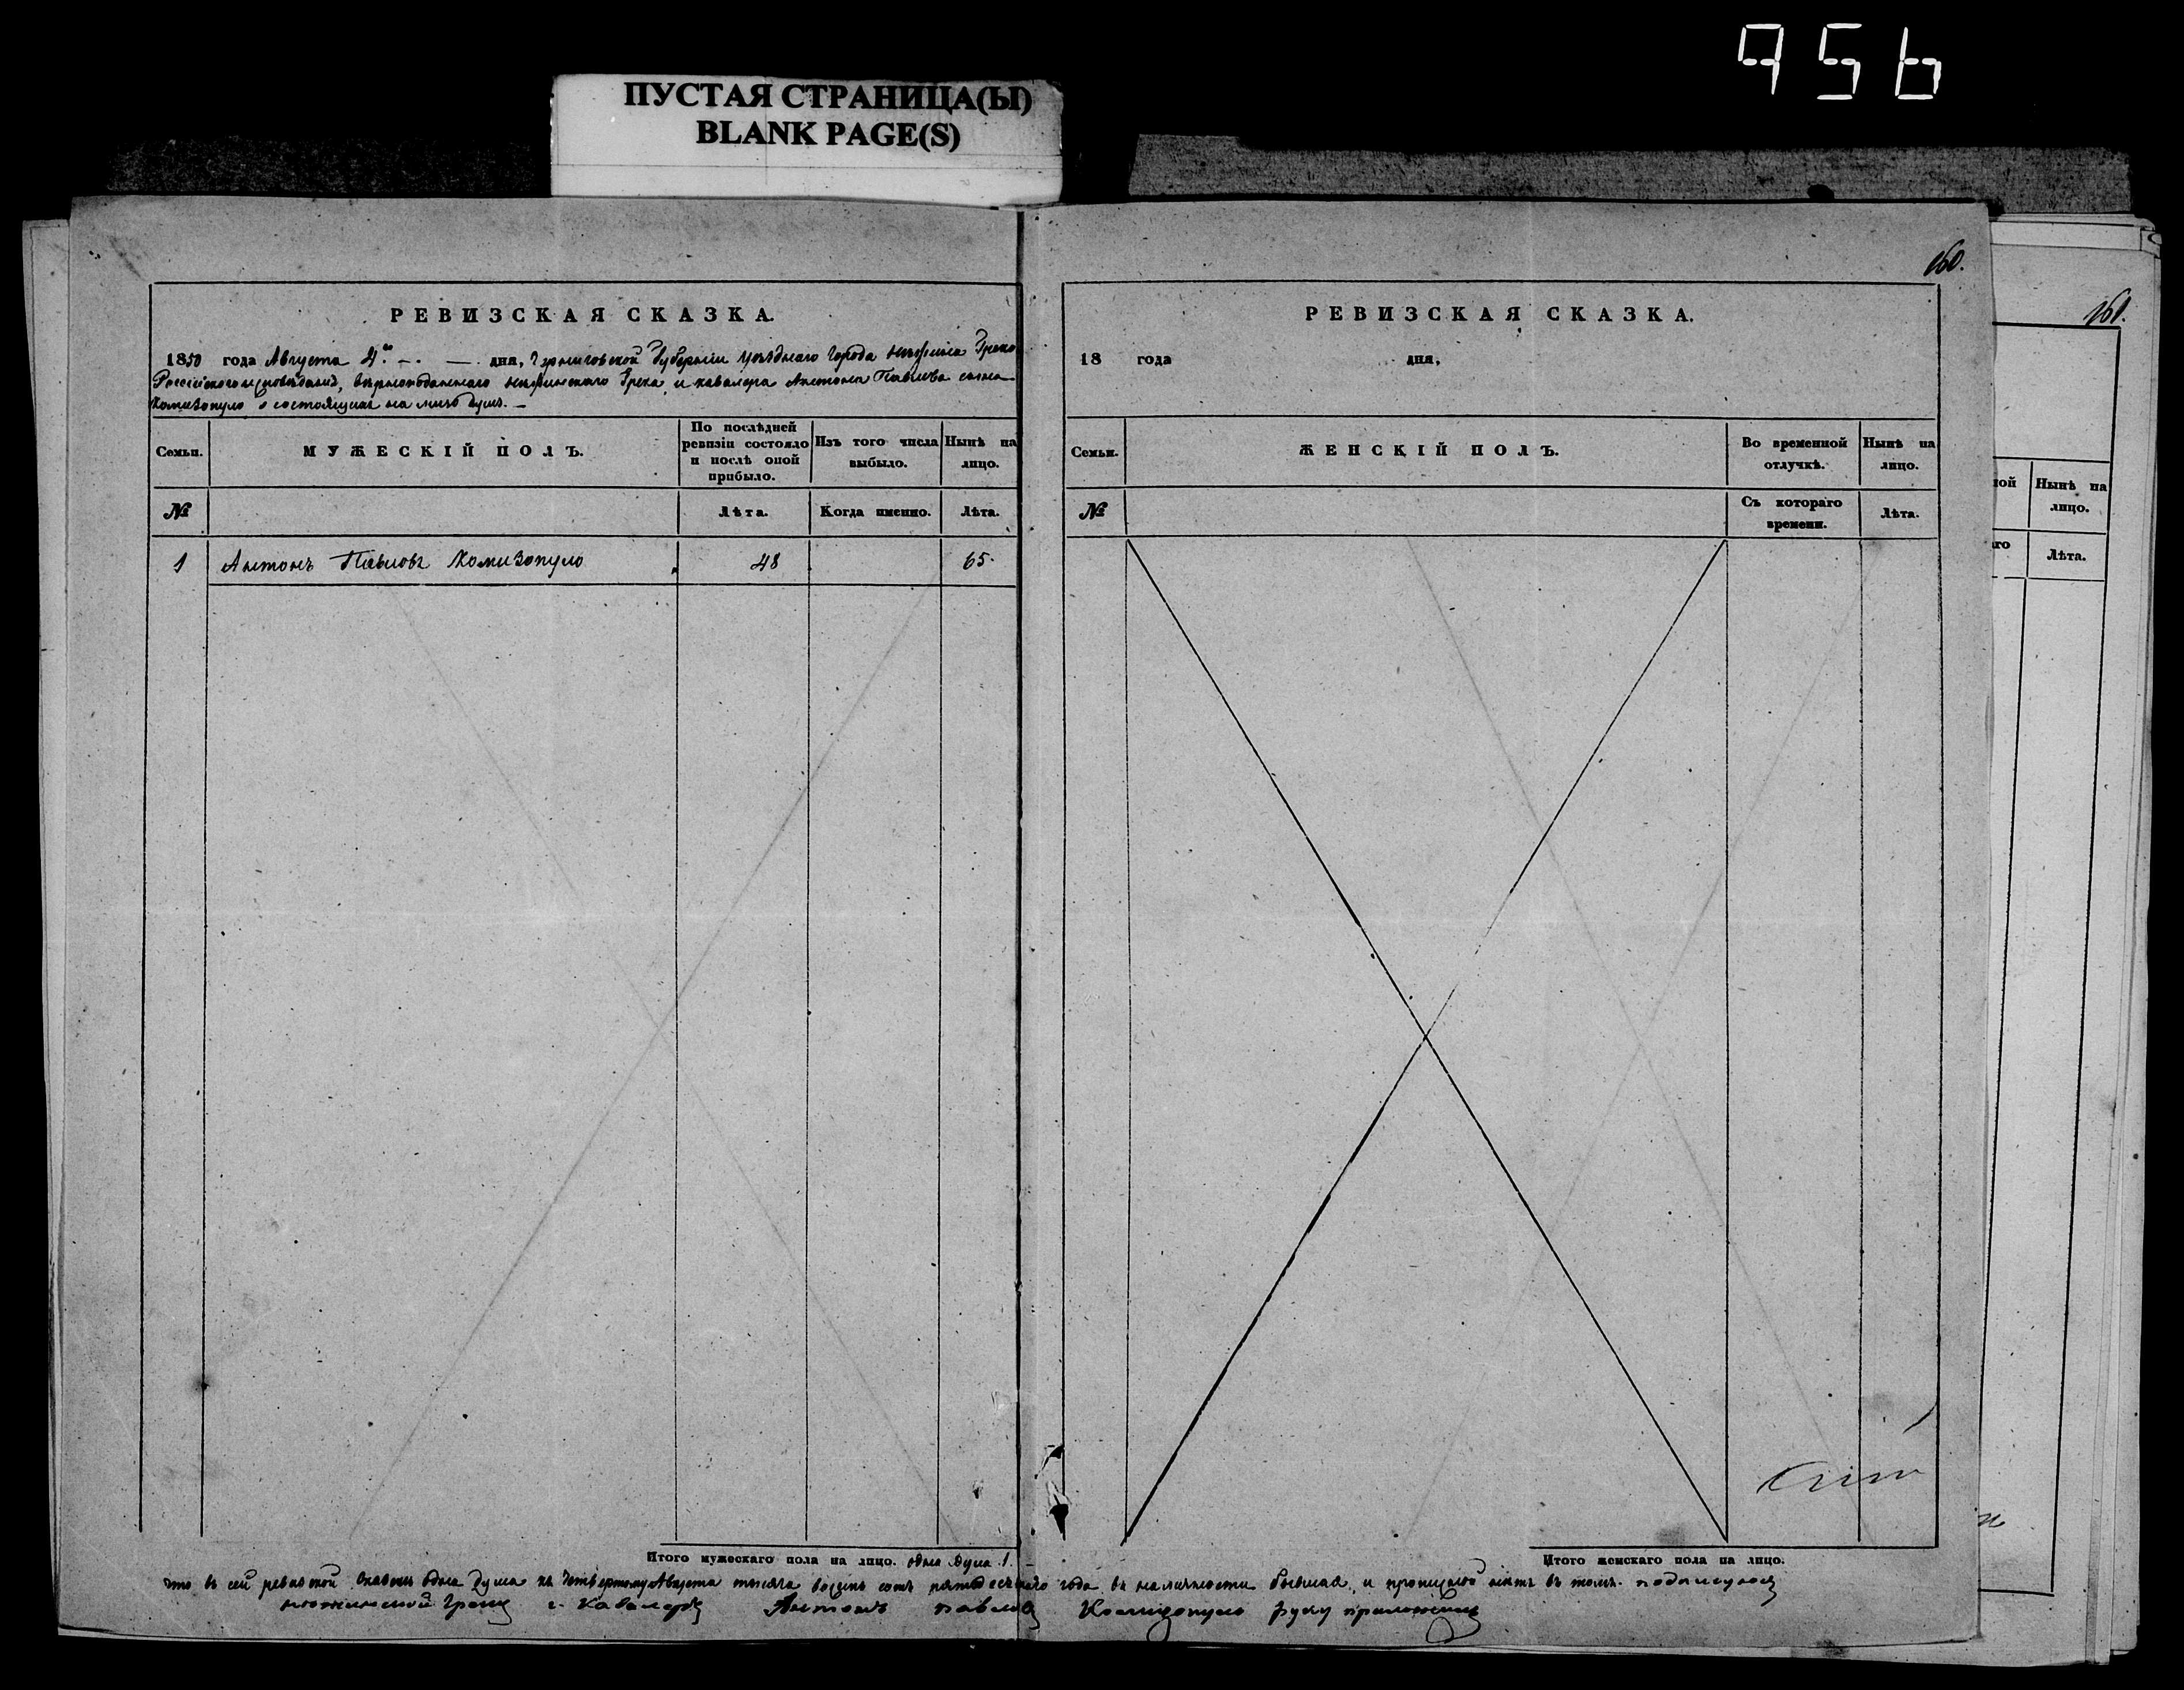 956
ПУСТАЯ СТРАНИЦА(Ы)
BLANK PAGE(S)
160.
161.
РЕВИЗСКАЯ СКАЗКА.
1850 года Августа 4.го дня, Черниговской Губерніи уѣзднаго Города Нѣжина Греко
Россійскаго исповѣданія, вѣрноподаннаго нѣжинскаго Грека и кавалера Антона Павлова сына
Комизопуло о состоящихъ на лицо душъ.
Семьи.
МУЖЕСКІЙ ПОЛЪ.
По послѣдней ревизіи состояло и послѣ оной прибыло.
Изъ того числа выбыло.
Нынѣ на лицо.
№
Лѣта.
Когда именно.
Лѣта.
1 Антонъ Павловъ Комизопуло 48 65.
Итого мужескаго пола на лицо. одна душа 1.
РЕВИЗСКАЯ СКАЗКА.
18 года дня,
Семьи.
ЖЕНСКІЙ ПОЛЪ.
Во временной отлучкѣ.
Нынѣ на лицо.
№
Съ котораго времени.
Лѣта.
Итого женскаго пола на лицо.
что въ сей ревизской сказкѣ одна душа къ четвертому Августа тысяча восемь сотъ пятидесятаго года въ наличности бывшая, и прописной нѣтъ въ томъ подписуюсь
нѣжинской Грекъ и Кавалеръ Антонъ Павловъ Комизопуло руку приложилъ
ной
Нынѣ на лицо.
го
Лѣта.